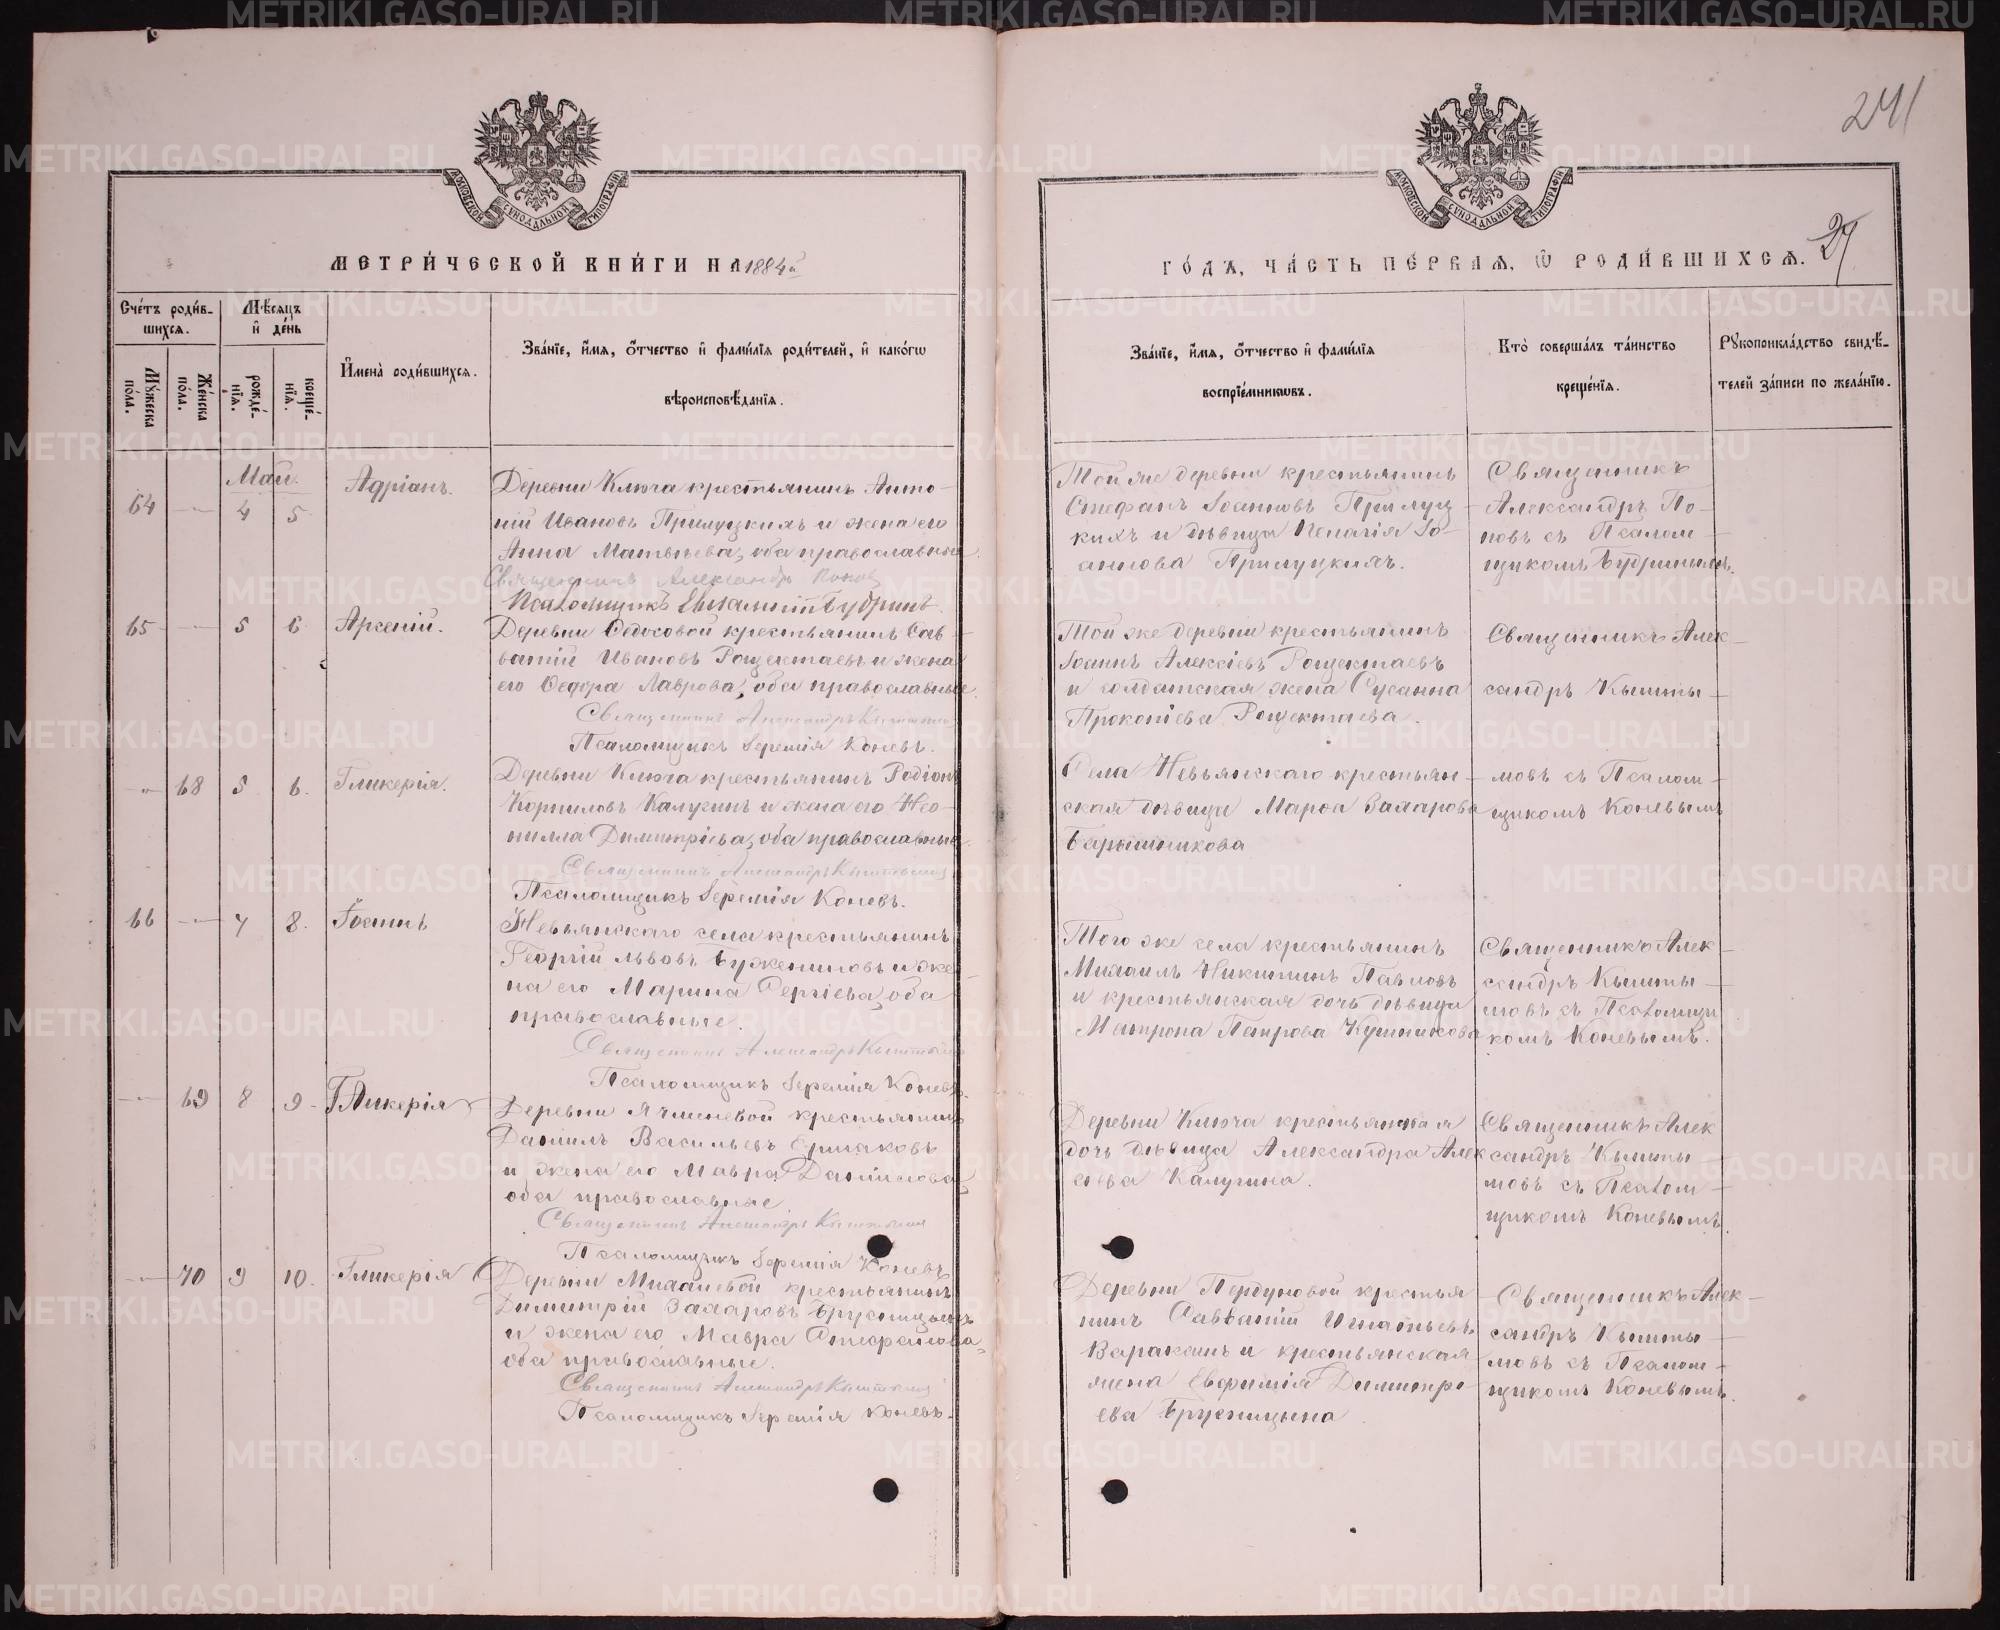 241
27
МОСКОВСКОЙ СѴНОДАЛЬНОЙ ТИПОГРАФІИ
МОСКОВСКОЙ СѴНОДАЛЬНОЙ ТИПОГРАФІИ
МЕТРИ́ЧЕСКОЙ КНИ́ГИ НА 1884й
ГО́ДЪ, ЧА́СТЬ ПЕ́РВАЯ, Ѡ РОДИ́ВШИХСЯ.
Сче́тъ роди́в-
шихся.
Мѣ́сяцъ
и де́нь
Мꙋ́жеска
по́ла.
Же́нска
по́ла.
рожде́-
нїя.
креще́-
нїя.
Имена̀ роди́вшихся.
Зва́нїе, и́мя, о́тчество и фами́лїя роди́телей, и како́гѡ
вѣроисповѣ́данїя.
Зва́нїе, и́мя, о́тчество и фами́лїя
воспрїе́мникѡвъ.
Кто̀ соверша́лъ та́инство
креще́нїя.
Рꙋкоприкла́дство свидѣ́-
телей за́писи по жела́нїю.
Май.
64 — 4 5 Адріанъ.
Деревни Ключа крестьянинъ Анто-
ній Ивановъ Прилуцкихъ и жена его
Анна Матвѣева, оба православные
Священникъ Александръ Поповъ
Псаломщикъ Бубринъ.
Той же деревни крестьянинъ
Стефанъ Іоанновъ Прилуц-
кихъ и дѣвица Пелагія Іо-
аннова Прилуцкихъ.
Священникъ
Александръ По-
повъ съ Псалом-
щикомъ Бубринымъ.
65 — 5 6 Арсеній.
Деревни Ѳедосовой крестьянинъ Сав-
ватій Ивановъ Рощектаевъ и жена
его Ѳедора Лаврова, оба православные.
Священникъ Александръ Кыштымовъ
Псаломщикъ Іеремія Коневъ.
Той же деревни крестьянинъ
Іоаннъ Алексіевъ Рощектаевъ
и солдатская жена Сусанна
Прокопіева Рощектаева.
Священникъ Алек-
сандръ Кышты-
— 68 5 6. Гликерія.
Деревни Ключа крестьянинъ Родіонъ
Корниловъ Калугинъ и жена его Нео-
нилла Димитріева, оба православные.
Священникъ Александръ Кыштымовъ
Псаломщикъ Іеремія Коневъ.
Села Невьянскаго крестьян-
ская дѣвица Марѳа Захарова
Барышникова
мовъ съ Псалом-
щикомъ Коневымъ
66 — 7 8. Іоаннъ
Невьянскаго села крестьянинъ
Георгій Львовъ Бужениновъ и же-
на его Марина Сергіева, оба
православные.
Священникъ Александръ Кыштымовъ
Псаломщикъ Іеремія Коневъ.
Того же села крестьянинъ
Михаилъ Никитинъ Павловъ
и крестьянская дочь дѣвица
Матрона Петрова
Священникъ Алек-
сандръ Кышты-
мовъ съ Псаломщи
комъ Коневымъ.
— 69 8 9. Гликерія
Деревни Ячменевой крестьянинъ
Даніилъ Васильевъ Ермаковъ
и жена его Мавра Даніилова,
оба православные
Священникъ Александръ Кыштымовъ
Псаломщикъ Іеремія Коневъ
Деревни Ключа крестьянская
дочь дѣвица Александра Алек
сіева Калугина.
Священникъ Алек
сандръ Кышты-
мовъ съ Псалом-
щикомъ Коневымъ
— 70 9 10. Гликерія
Деревни Михалевой крестьянинъ
Димитрій Захаровъ Брусницынъ
и жена его Мавра Стефанова,
оба православные.
Священникъ Александръ Кыштымовъ
Псаломщикъ Іеремія Коневъ.
Деревни Пердуновой крестья
нинъ Савватій Игнатьевъ
Вараксинъ и крестьянская
жена Евфимія Димитрі-
ева Брусницына
Священникъ Алек-
сандръ Кышты-
мовъ съ Псалом-
щикомъ Коневымъ.